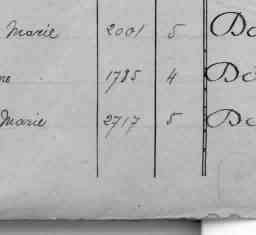 Marie 2001 5 Do
ne 1785 4 Dé
Marie 2717 5 De